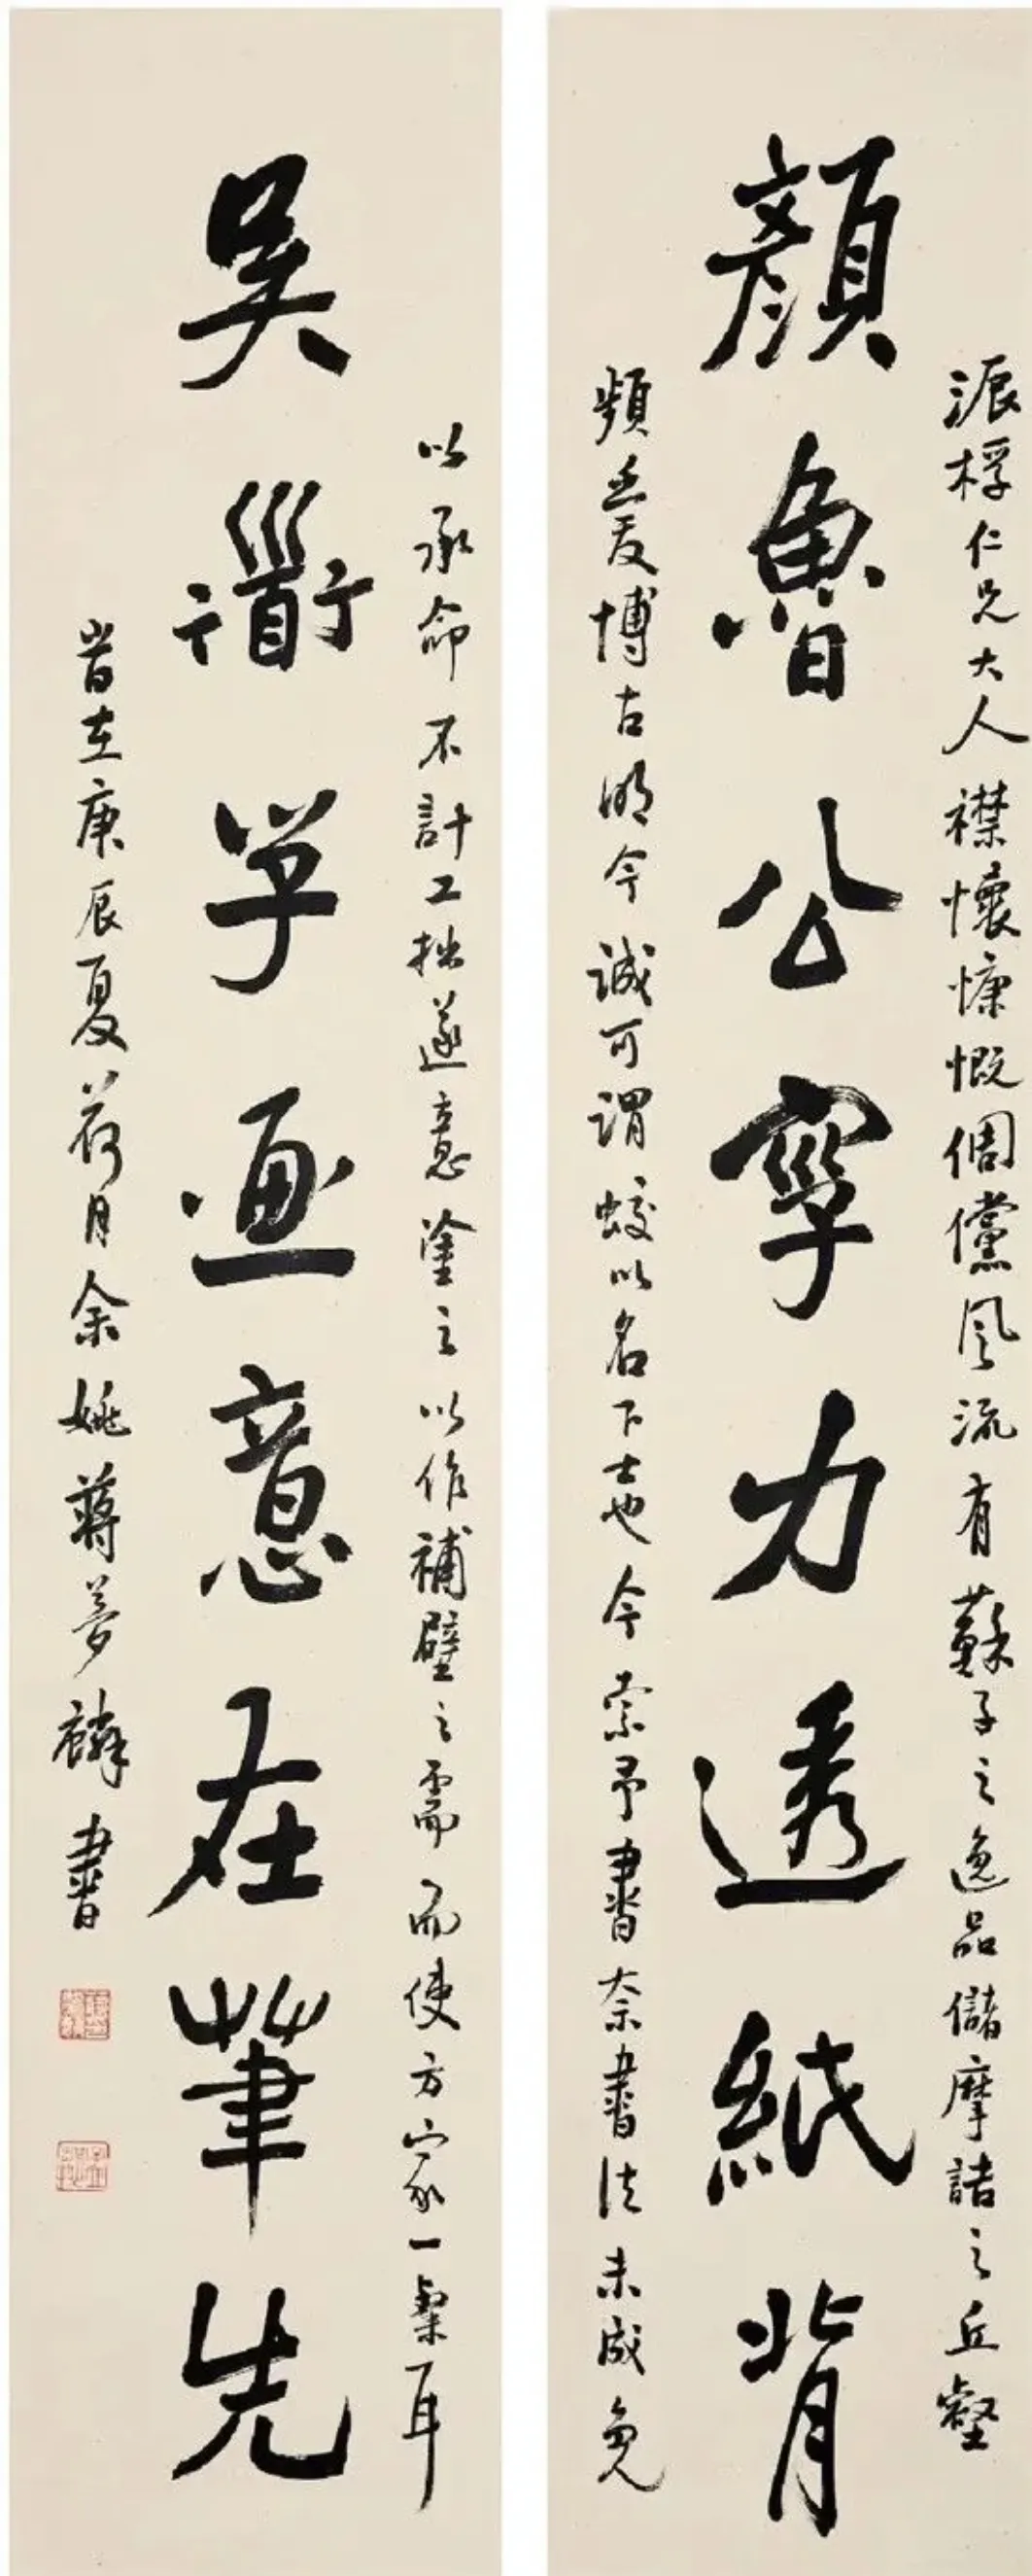 桴仁兄大人襟懷慷慨倜儻風流有蘇子之逸品儲摩詰之丘壑
顏魯公字力透紙背
頻博古明今誠可謂以名下士也今索予書奈書法未成免
以承命不計工拙遂意塗之以作補壁之需而使方家一粲耳
吳衜子画意在筆先
旹在庚辰夏荷月余姚蔣夢麟書